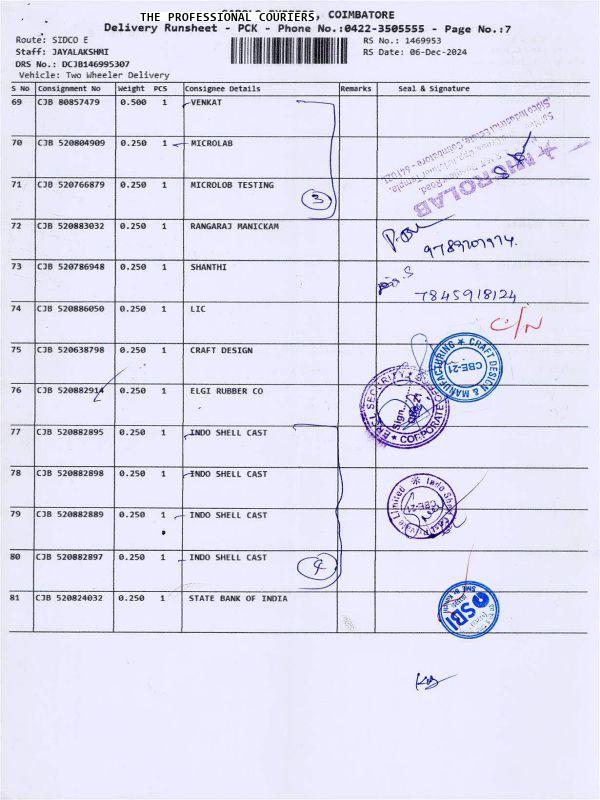 THE PROFESSIONAL COURIERS, COIMBATORE
Delivery Runsheet - PCK - Phone No.:0422-3505555 - Page No.:7
Route: SIDCO E
RS No.: 1469953
Staff: JAYALAKSHMI
RS Date: 06-Dec-2024
DRS No.: DCJB146995307
Vehicle: Two Wheeler Delivery
S No Consignment No Weight PCS Consignee Details Remarks Seal & Signature
69 CJB 80857479 0.500 1 VENKAT
70 CJB 520804909 0.250 1 MICROLAB
71 CJB 520766879 0.250 1 MICROLOB TESTING
3
MICROLAB
72 CJB 520883032 0.250 1 RANGARAJ MANICKAM
73 CJB 520786948 0.250 1 SHANTHI
7845918124
74 CJB 520886050 0.250 1 LIC
C/N
75 CJB 520638798 0.250 1 CRAFT DESIGN
CRAFT DESIGN & MANUFACTURING
CBE-21
76 CJB 520882914 0.250 1 ELGI RUBBER CO
SECURITY
CORPORATE OFFICE
77 CJB 520882895 0.250 1 INDO SHELL CAST
78 CJB 520882898 0.250 1 INDO SHELL CAST
79 CJB 520882889 0.250 1 INDO SHELL CAST
Indo Shell Cast Private Limited
CBE-21
80 CJB 520882897 0.250 1 INDO SHELL CAST
4
81 CJB 520824032 0.250 1 STATE BANK OF INDIA
SBI